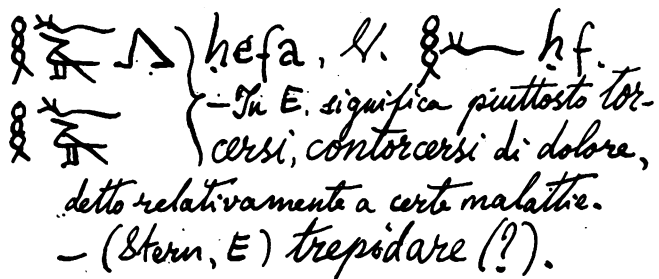 𓎛𓆑𓄿𓂻 } ḥefa, V. 𓎛𓆑 ḥf.
𓎛𓆑𓄿 – In E. significa piuttosto tor-
cersi, contorcersi di dolore,
detto relativamente a certe malattie.
– (Stern, E) trepidare (?).